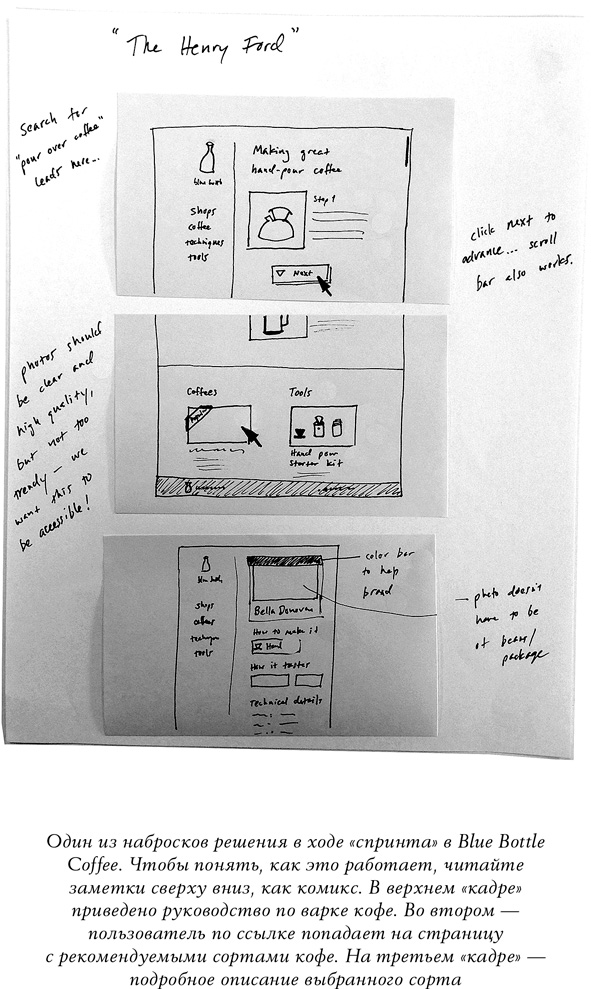 "The Henry Ford"
Search for
"pour over coffee"
leads here...
Making great
hand-pour coffee
Step 1
shops
coffee
techniques
tools
Next
click next to
advance... scroll
bar also works.
photos should
be clear and
high quality,
but not too
trendy – we
want this to
be accessible!
Coffees
Tools
Hand pour
Starter kit
color bar
to help
bread
photo doesn't
have to be
of beans/
package
shops
coffees
tools
Bella Donovan
How to make it
Hand
How it tastes
Technical details
Один из набросков решения в ходе «спринта» в Blue Bottle
Coffee. Чтобы понять, как это работает, читайте
заметки сверху вниз, как комикс. В верхнем «кадре»
приведено руководство по варке кофе. Во втором —
пользователь по ссылке попадает на страницу
с рекомендуемыми сортами кофе. На третьем «кадре» —
подробное описание выбранного сорта